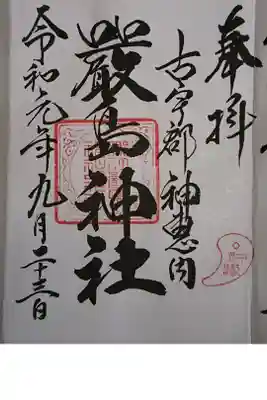 奉拝
古宇郡 神恵内
厳島神社
令和元年九月二十三日